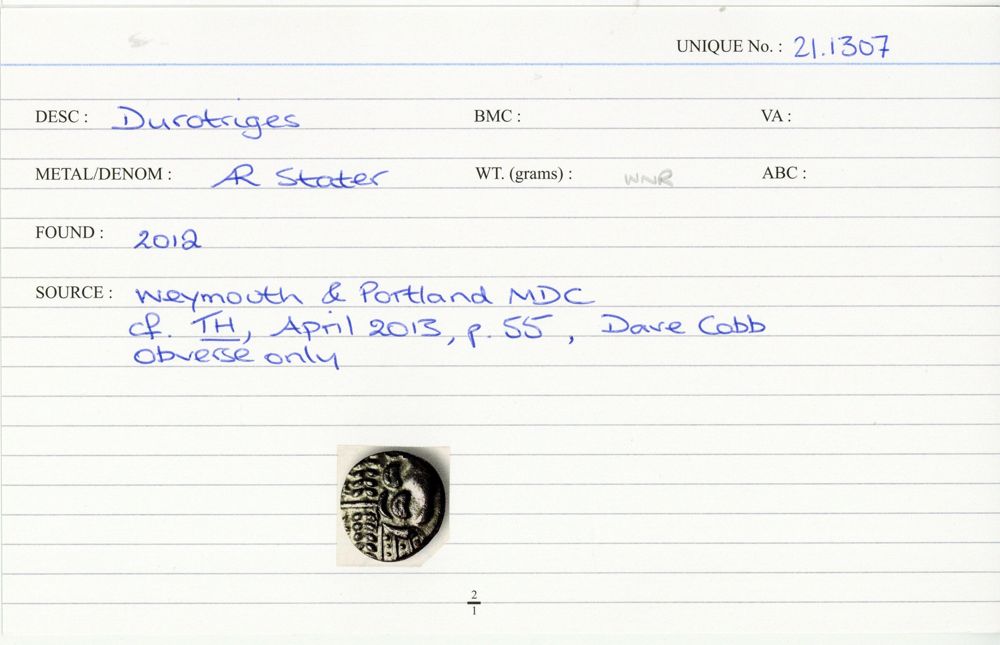 UNIQUE No. : 21.1307
DESC : Durotriges BMC : VA :
METAL/DENOM : AR Stater WT. (grams) : WNR ABC :
FOUND : 2012
SOURCE : Weymouth & Portland MDC
cf. TH, April 2013, p. 55, Dave Cobb
Obverse only
2
1